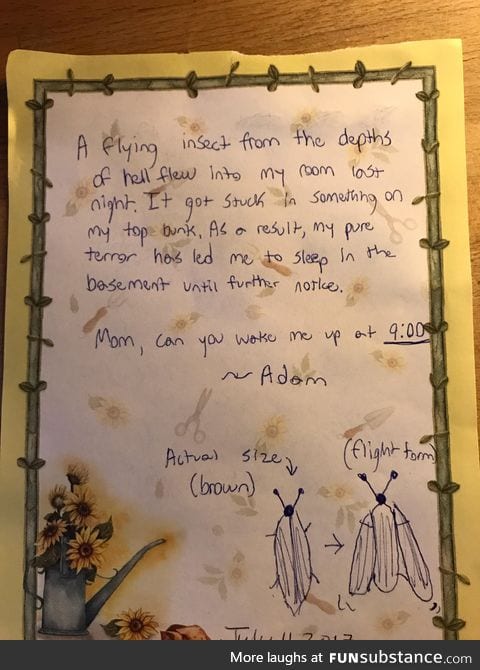 A flying insect from the depths
of hell flew into my room last
night. It got stuck in something on
my top bunk. As a result, my pure
terror has led me to sleep in the
basement until further notice.
Mom, can you wake me up at 9:00
~ Adam
Actual size
(brown)
(flight form)
July 11 2017
More laughs at FUNsubstance.com